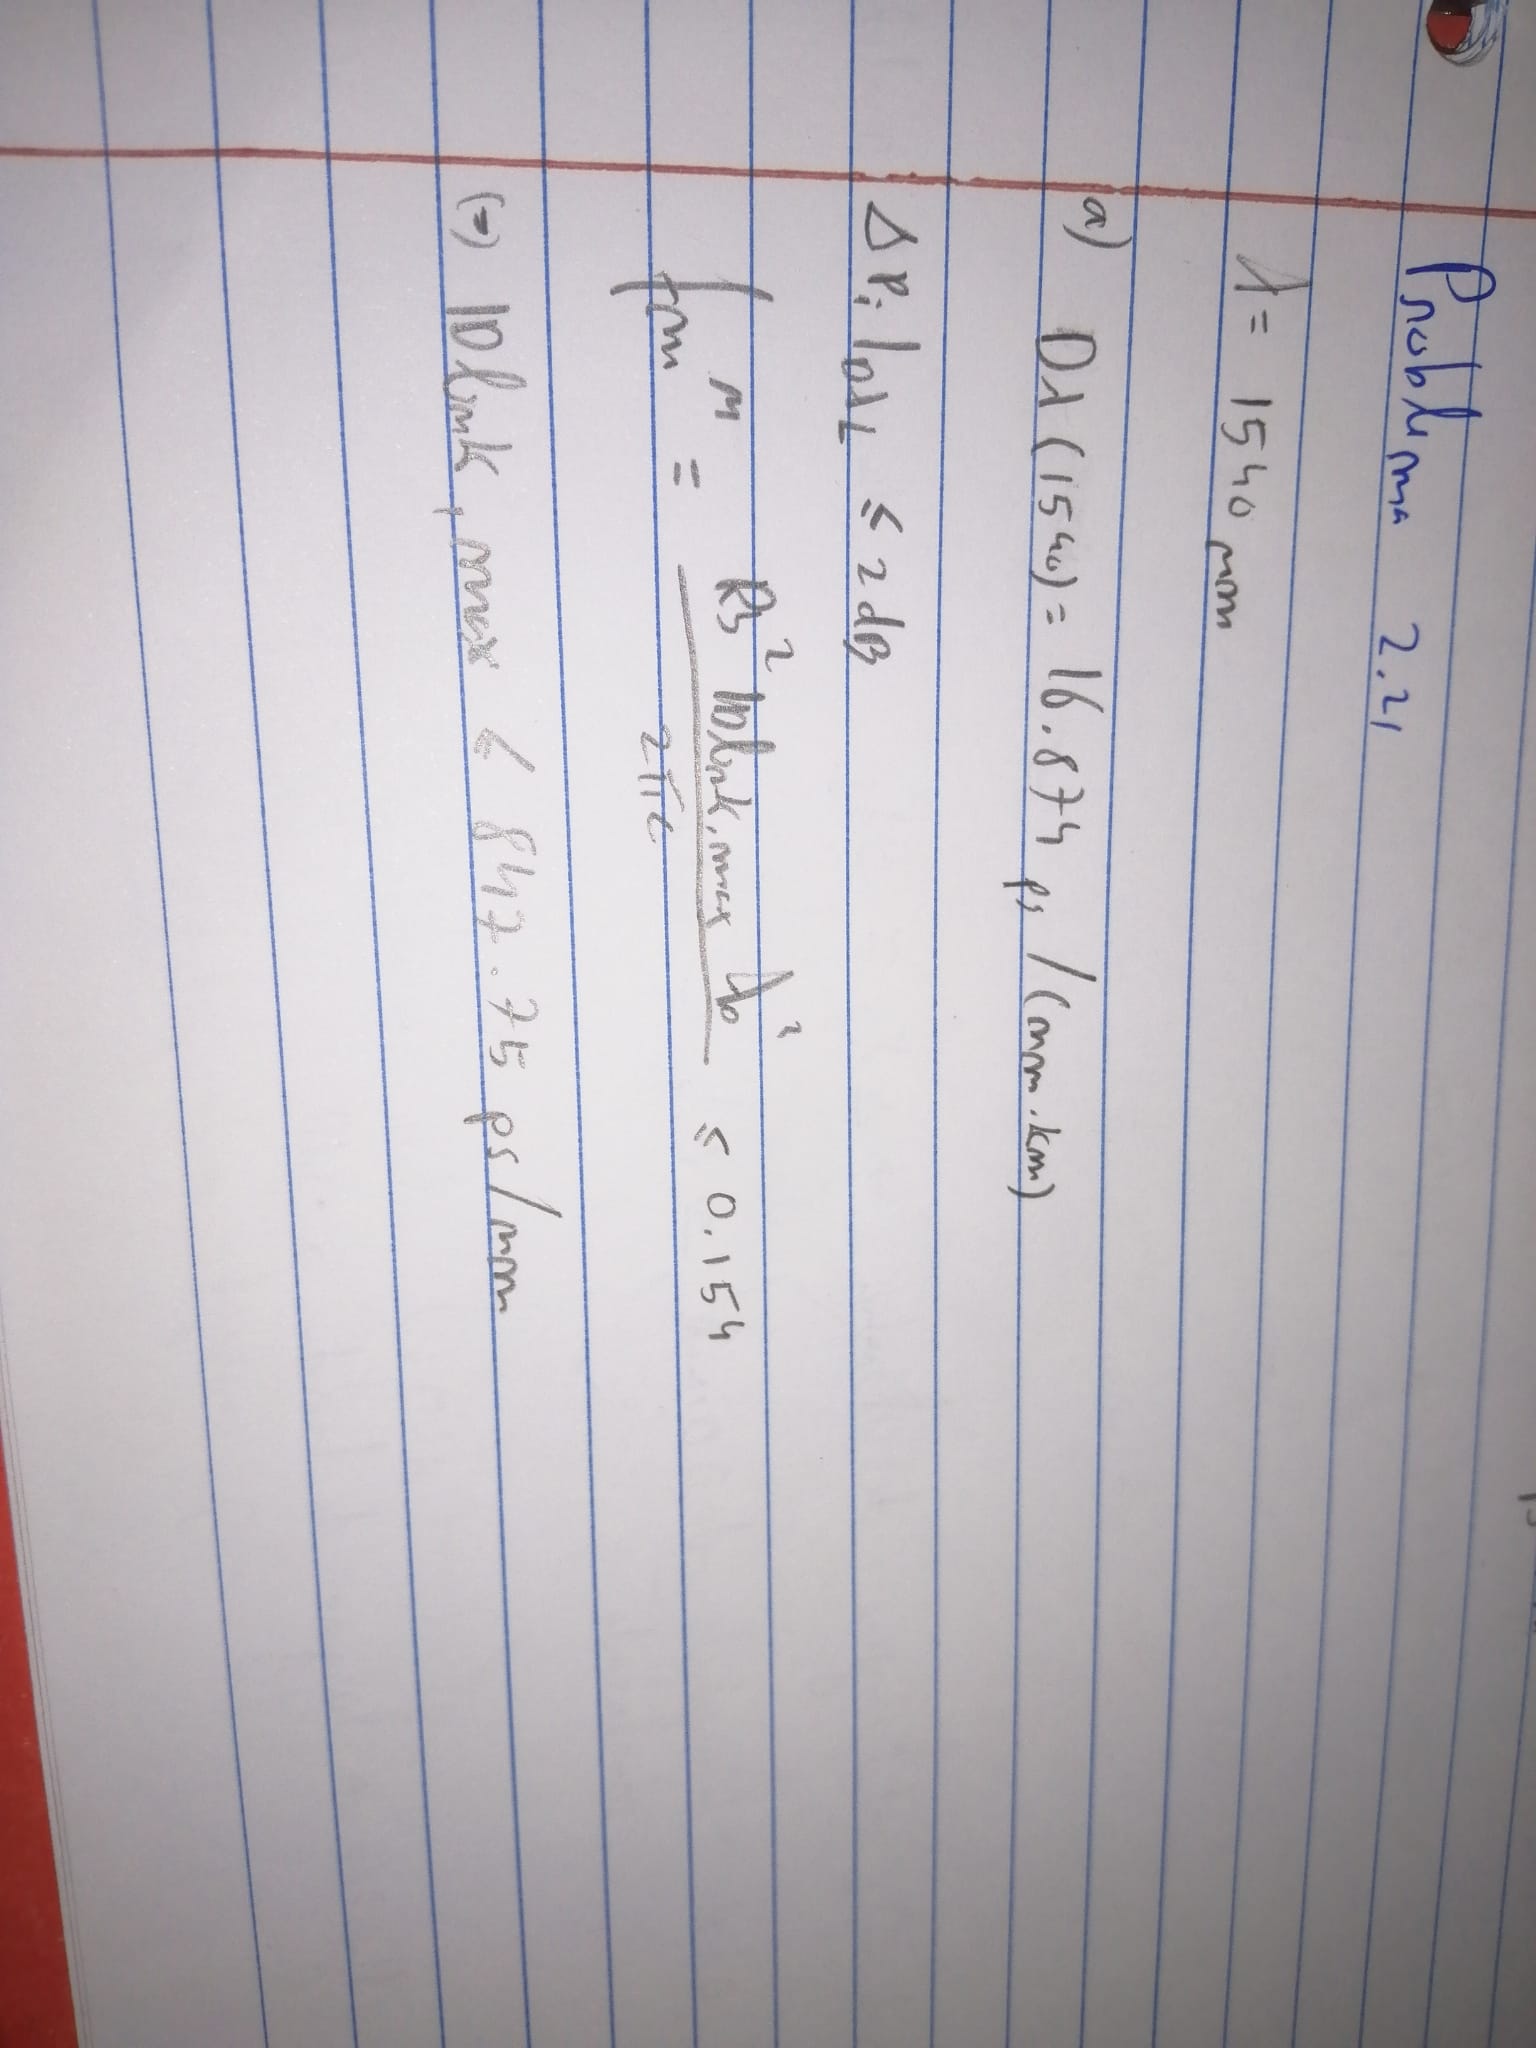 Problema 2.21
λ = 1540 nm
a) Dλ (1540) = 16.874 ps / (nm.km)
ΔPi |DλL ≤ 2 dB
= Rb² |Dlink,max λ0² / 2πc ≤ 0.154
(=) |Dlink, max < 847.75 ps/nm